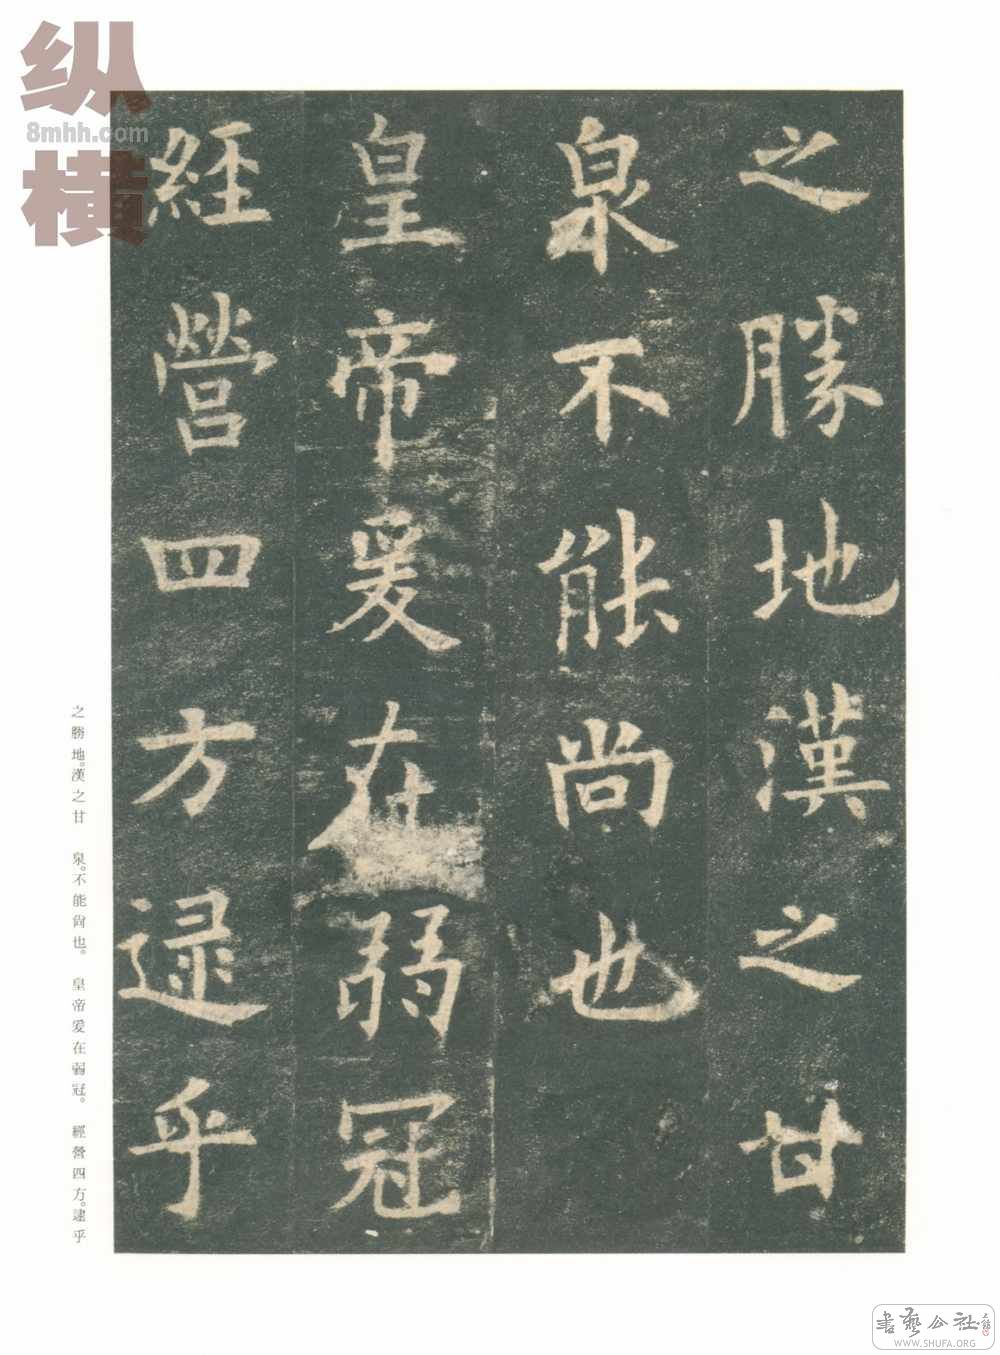 之勝地漢之甘
泉不能尚也
皇帝爰在弱冠
經營四方逯乎
之勝地。漢之甘 泉。不能尙也。 皇帝爰在弱冠。 經營四方。逮乎
纵横
8mhh.com
書藝公社
WWW.SHUFA.ORG